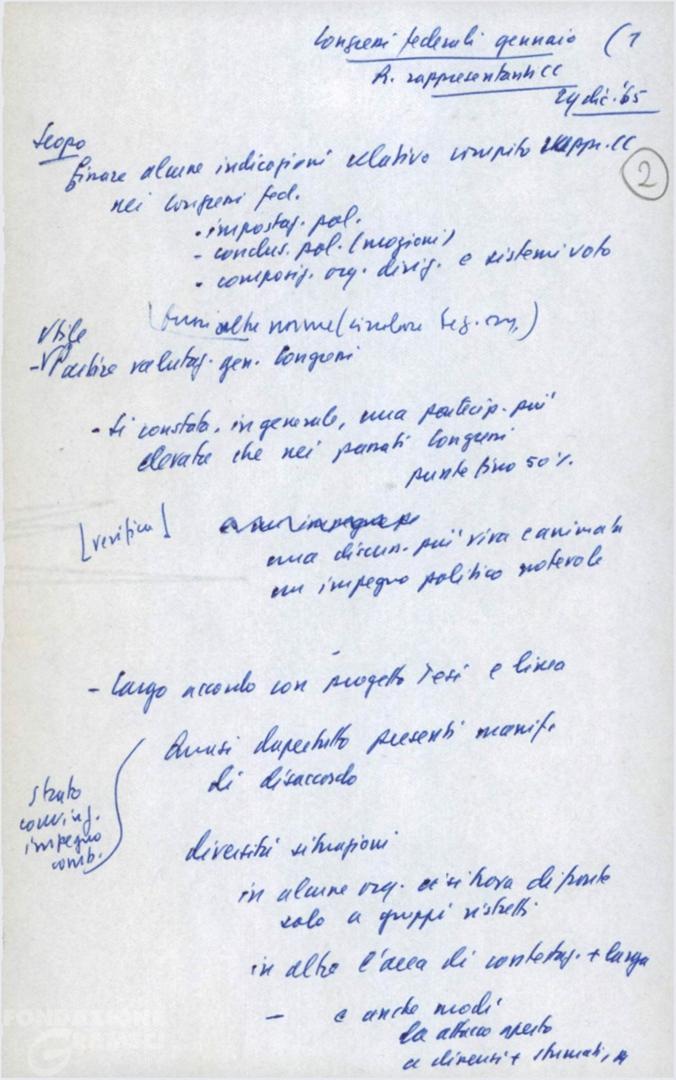 Congressi federali gennaio (1
R. rappresentanti CC
29 dic. '65
Scopo
2
fissare alcune indicazioni relative compito rappr. CC
nei Congressi fed.
- impostaz. pol.
- conclus. pol. (mozioni)
- composiz. org. dirig. e sistemi voto
altre norme (circolare Sez. org.)
Utile
- partire valutaz. gen. Congressi
- Si constata, in generale, una partecip. più
elevata che nei passati Congressi
punte fino 50%
[verifica]
una discuss. più viva e animata
un impegno politico notevole
- Largo accordo con progetto Tesi e linea
Quasi dapertutto presenti manif.
di disaccordo
strato
convinz.
impegno
comb.
diversità situazioni
in alcune org. ci si trova di fronte
solo a gruppi ristretti
in altre l'area di contestaz. + larga
- e anche modi
da attacco aperto
a dissensi + sfumati,
FONDAZIONE
GRAMSCI